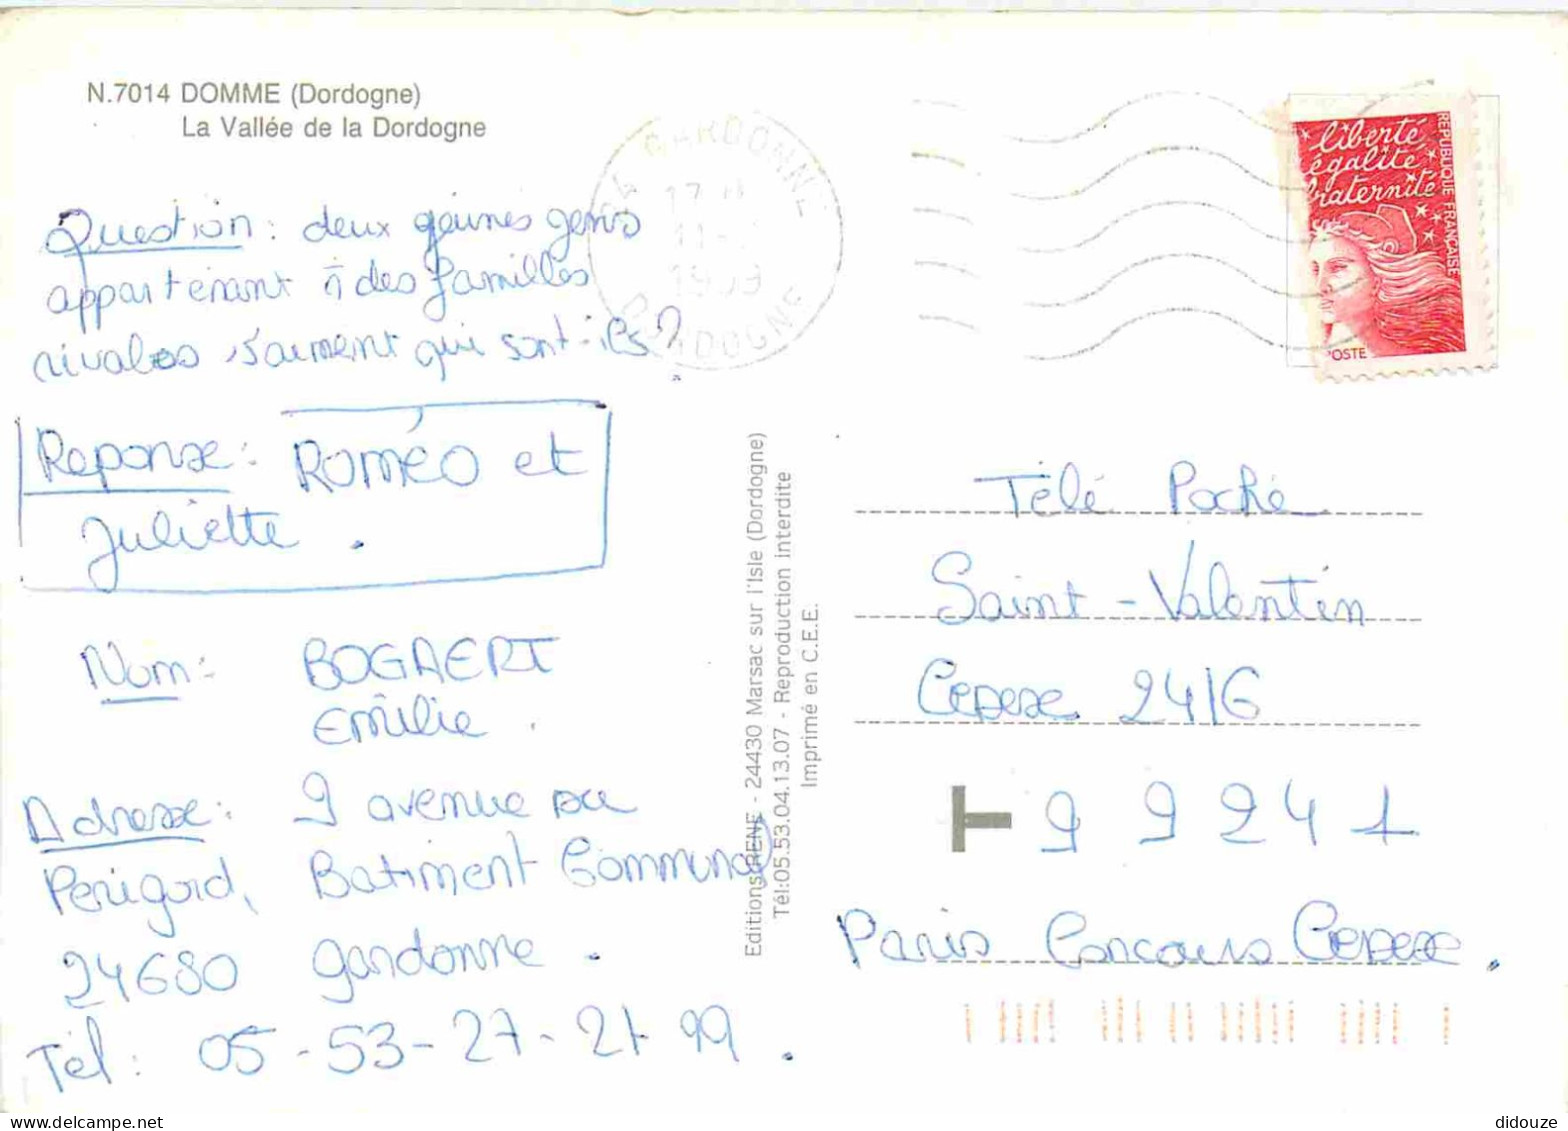 N.7014 DOMME (Dordogne)
La Vallée de la Dordogne
Question: deux geunes gens
appartenant à des familles
rivales s'aiment qui sont-ils?
Reponse: Roméo et
Juliette.
Nom: BOGAERT
Emilie.
Adresse: 9 avenue du
Perigord, Batiment Communal
24680 gardonne.
Tél: 05-53-27-21 99.
24 GARDONNE
17 H
11-
1999
DORDOGNE
liberté
égalité
fraternité
REPUBLIQUE FRANÇAISE
POSTE
Editions RENE - 24430 Marsac sur l'Isle (Dordogne)
Tél:05.53.04.13.07 - Reproduction interdite
Imprimé en C.E.E.
Télé Poche
Saint-Valentin
Cedex 2416
T 9 9 2 4 1
Paris Concours Cedex.
didouze